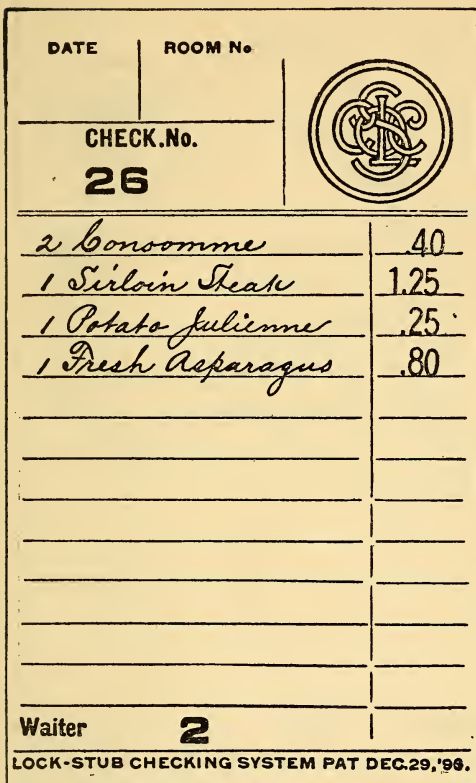 DATE ROOM No
CHECK.No.
26
2 Consomme .40
1 Sirloin Steak 1.25
1 Potato Julienne .25
1 Fresh Asparagus .80
Waiter 2
LOCK-STUB CHECKING SYSTEM PAT DEC.29,'96.